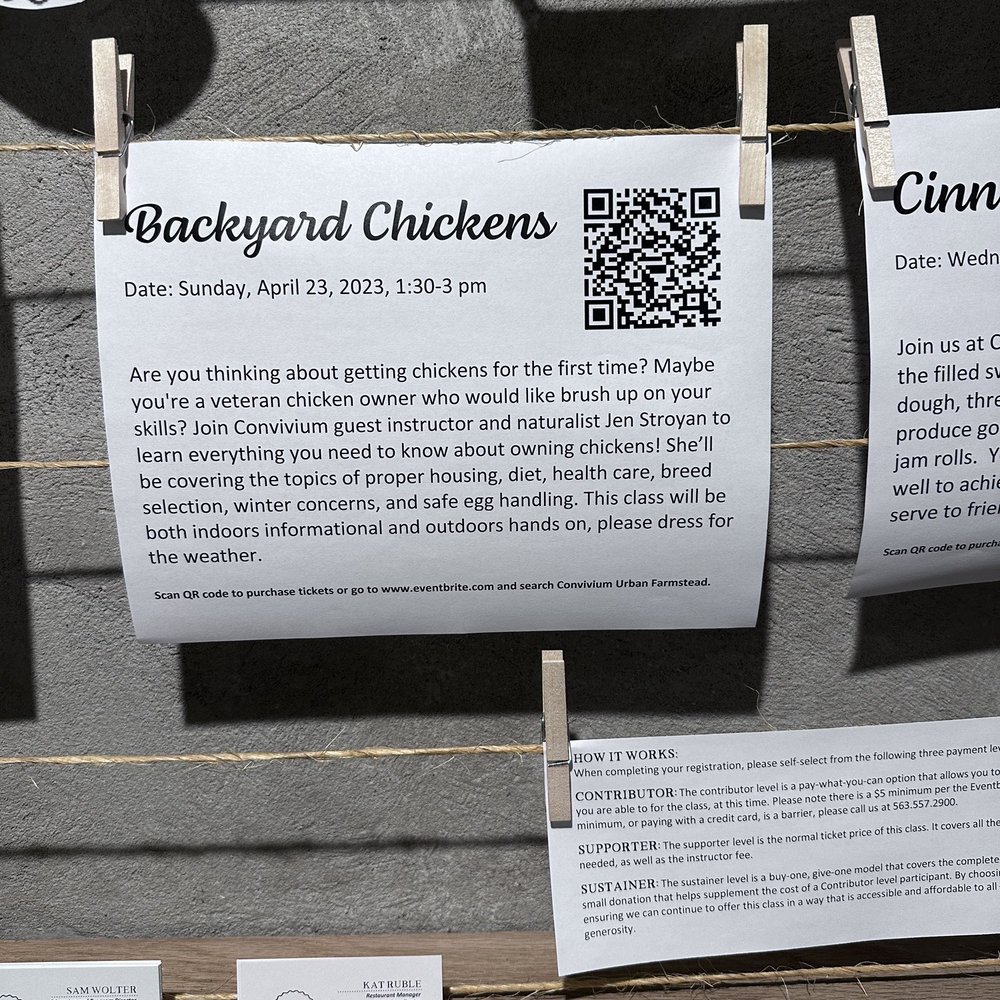 Backyard Chickens
Date: Sunday, April 23, 2023, 1:30-3 pm
Are you thinking about getting chickens for the first time? Maybe
you're a veteran chicken owner who would like brush up on your
skills? Join Convivium guest instructor and naturalist Jen Stroyan to
learn everything you need to know about owning chickens! She'll
be covering the topics of proper housing, diet, health care, breed
selection, winter concerns, and safe egg handling. This class will be
both indoors informational and outdoors hands on, please dress for
the weather.
Scan QR code to purchase tickets or go to www.eventbrite.com and search Convivium Urban Farmstead.
Cinn
Date: Wedn
Join us at C
the filled sw
dough, thre
produce go
jam rolls. Y
well to achie
serve to frien
Scan QR code to purcha
HOW IT WORKS:
When completing your registration, please self-select from the following three payment lev
CONTRIBUTOR: The contributor level is a pay-what-you-can option that allows you to
you are able to for the class, at this time. Please note there is a $5 minimum per the Eventb
minimum, or paying with a credit card, is a barrier, please call us at 563.557.2900.
SUPPORTER: The supporter level is the normal ticket price of this class. It covers all the
needed, as well as the instructor fee.
SUSTAINER: The sustainer level is a buy-one, give-one model that covers the complete
small donation that helps supplement the cost of a Contributor level participant. By choosin
ensuring we can continue to offer this class in a way that is accessible and affordable to all
generosity.
SAM WOLTER
KAT RUBLE
Restaurant Manager